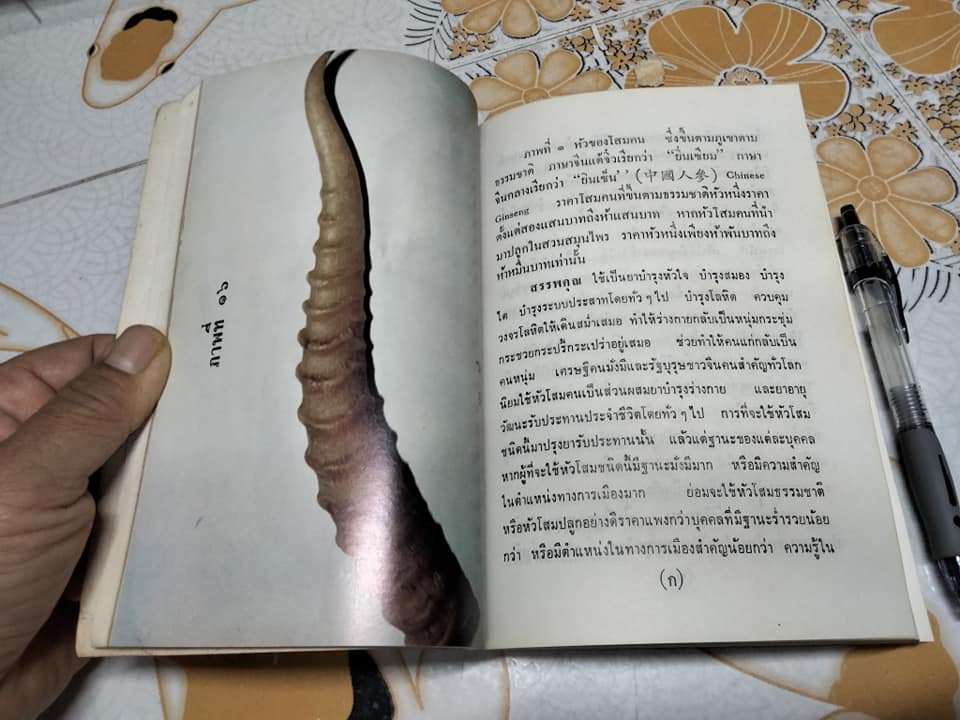 ภาพที่ ๑๖
ภาพที่ ๑ หัวของโสมคน ซึ่งขึ้นตามภูเขาตาม
ธรรมชาติ ภาษาจีนแต้จิ๋วเรียกว่า “ยิ่นเซียม” ภาษา
จีนกลางเรียกว่า “ยิ่นเซ็น” (中國人參) Chinese
Ginseng ราคาโสมคนที่ขึ้นตามธรรมชาติหัวหนึ่งราคา
ตั้งแต่สองแสนบาทถึงห้าแสนบาท หากหัวโสมคนที่นำ
มาปลูกในสวนสมุนไพร ราคาหัวหนึ่งเพียงห้าพันบาทถึง
ห้าหมื่นบาทเท่านั้น
สรรพคุณ ใช้เป็นยาบำรุงหัวใจ บำรุงสมอง บำรุง
ไต บำรุงระบบประสาทโดยทั่ว ๆ ไป บำรุงโลหิต ควบคุม
วงจรโลหิตให้เดินสม่ำเสมอ ทำให้ร่างกายกลับเป็นหนุ่มกระชุ่ม
กระชวยกระปรี้กระเปร่าอยู่เสมอ ช่วยทำให้คนแก่กลับเป็น
คนหนุ่ม เศรษฐีคนมั่งมีและรัฐบุรุษชาวจีนคนสำคัญทั่วโลก
นิยมใช้หัวโสมคนเป็นส่วนผสมยาบำรุงร่างกาย และยาอายุ
วัฒนะรับประทานประจำชีวิตโดยทั่ว ๆ ไป การที่จะใช้หัวโสม
ชนิดนี้มาปรุงยารับประทานนั้น แล้วแต่ฐานะของแต่ละบุคคล
หากผู้ที่จะใช้หัวโสมชนิดนี้มีฐานะมั่งมีมาก หรือมีความสำคัญ
ในตำแหน่งทางการเมืองมาก ย่อมจะใช้หัวโสมธรรมชาติ
หรือหัวโสมปลูกอย่างดีราคาแพงกว่าบุคคลที่มีฐานะร่ำรวยน้อย
กว่า หรือมีตำแหน่งในทางการเมืองสำคัญน้อยกว่า ความรู้ใน
(ก)